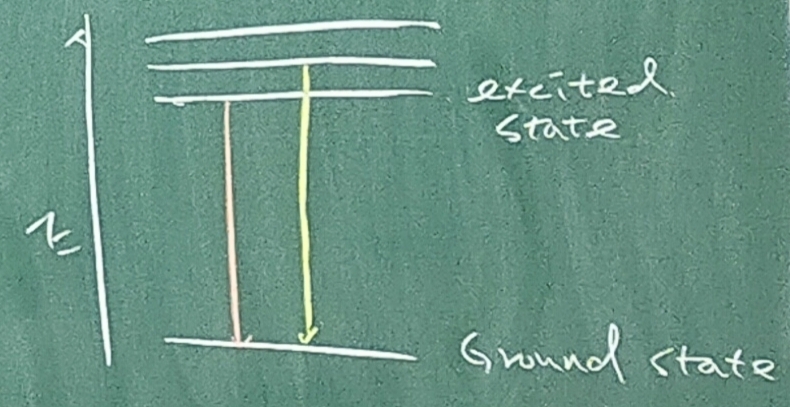 excited
state
E
Ground state